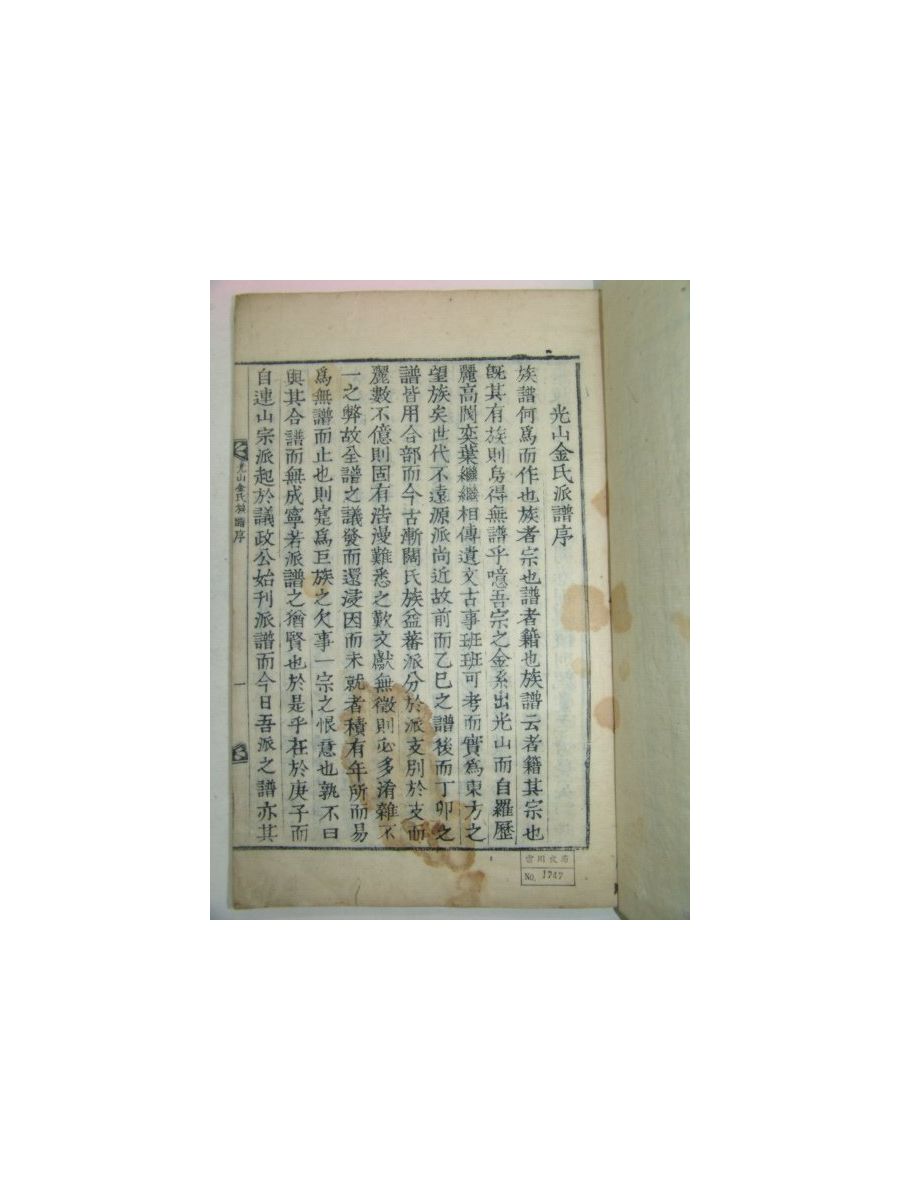 光山金氏派譜序
族譜何爲而作也族者宗也譜者籍也族譜云者籍其宗也
旣其有族則烏得無譜乎噫吾宗之金系出光山而自羅歷
麗高閥奕葉繼繼相傳遺文古事班班可考而實爲東方之
望族矣世代不遠源派尚近故前而乙巳之譜後而丁卯之
譜皆用合部而今古漸闊氏族益蕃派分於派支別於支而
麗數不億則固有浩漫難悉之歎文獻無徵則必多淆雜不
一之弊故全譜之議發而還浸因而未就者積有年所而易
爲無譜而止也則寔爲巨族之欠事一宗之恨意也孰不曰
與其合譜而無成寧若派譜之猶賢也於是乎在於庚子而
自連山宗派起於議政公始刊派譜而今日吾派之譜亦其
光山金氏派譜序
一
No. 1747